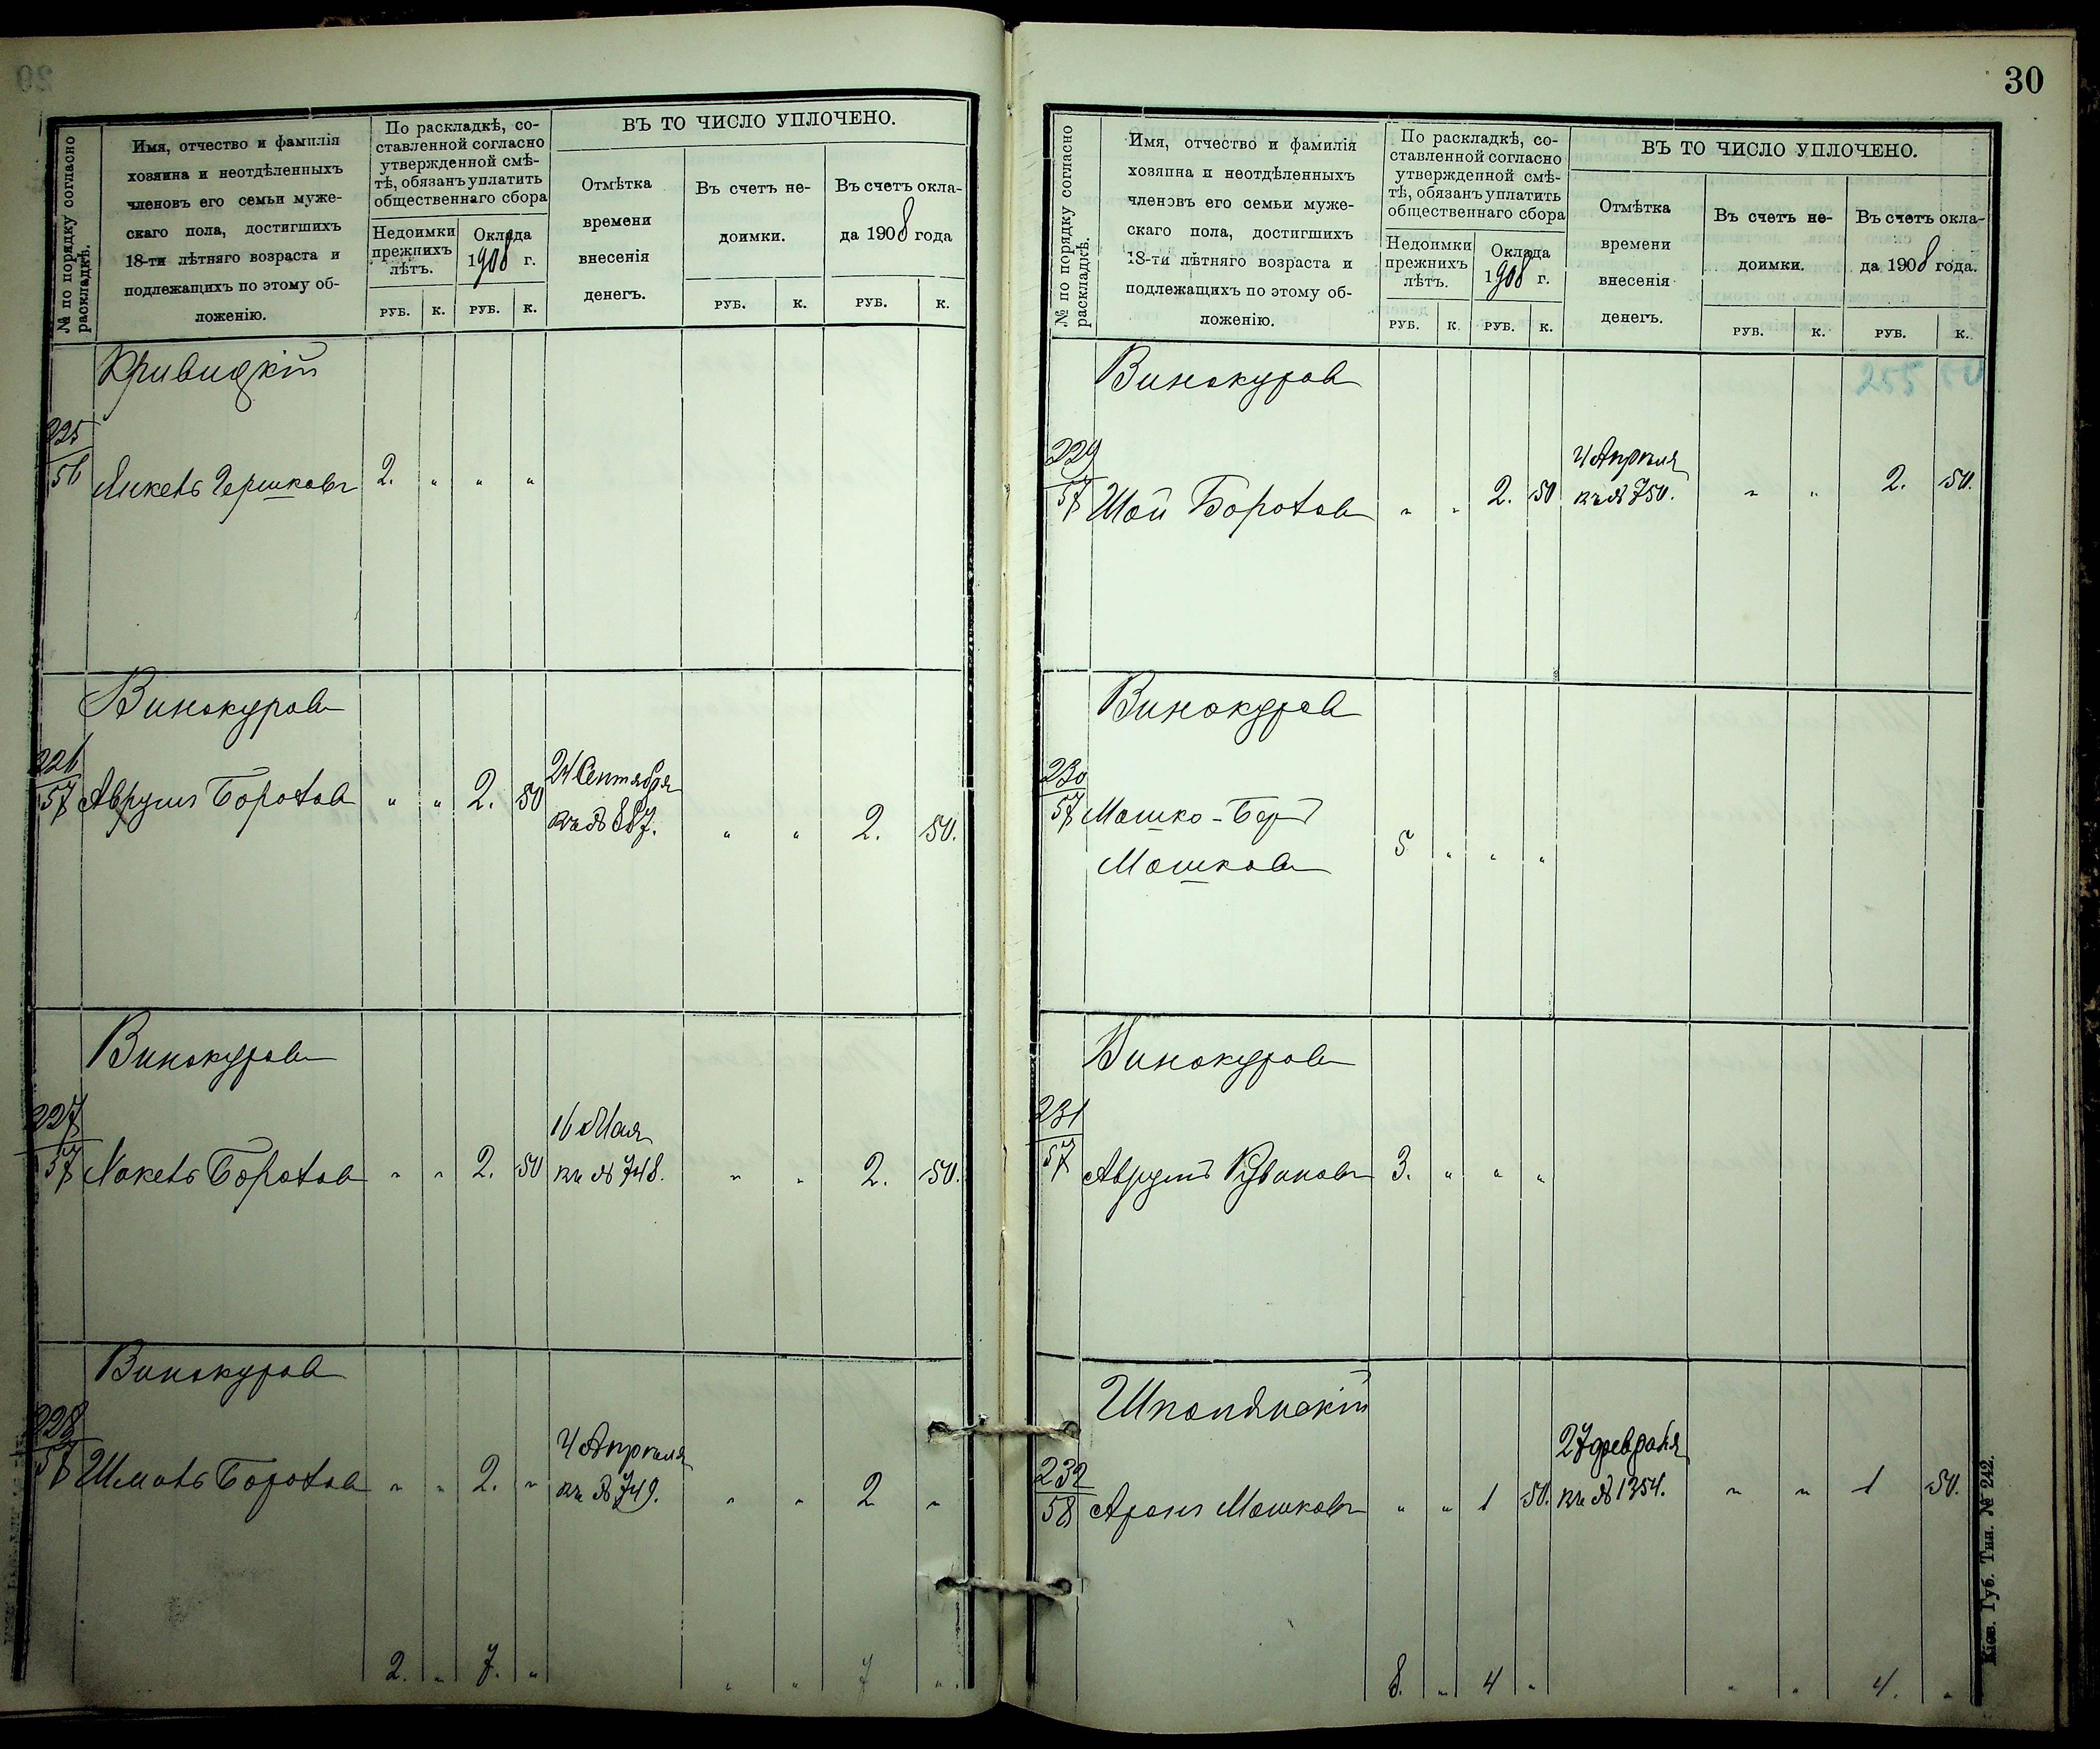 № по порядку согласно
раскладкѣ.
Имя, отчество и фамилія
хозяина и неотдѣленныхъ
членовъ его семьи муже-
скаго пола, достигшихъ
18-ти лѣтняго возраста и
подлежащихъ по этому об-
ложенію.
По раскладкѣ, со-
ставленной согласно
утвержденной смѣ-
тѣ, обязанъ уплатить
общественнаго сбора
Недоимки
прежнихъ
лѣтъ.
Оклада
1908 г.
РУБ. К. РУБ. К.
ВЪ ТО ЧИСЛО УПЛОЧЕНО.
Отмѣтка
времени
внесенія
денегъ.
Въ счетъ не-
доимки.
РУБ. К.
Въ счетъ окла-
да 1908 года
РУБ. К.
Кривицкій
225
56 Янкель Гершковъ 2. " " "
Винокуровъ
226
57 Аврумъ Бороховъ " " 2. 50
24 Сентября
къ № 887. " " 2. 50.
Винокуровъ
227
57 Бороховъ " " 2. 50
16 Мая
къ № 748. " " 2. 50.
Винокуровъ
228
57 Бороховъ " " 2. "
4 Апрѣля
къ № 749. " " 2 "
2. " 7. " " " 7 "
30
№ по порядку согласно
раскладкѣ.
Имя, отчество и фамилія
хозяина и неотдѣленныхъ
членовъ его семьи муже-
скаго пола, достигшихъ
18-ти лѣтняго возраста и
подлежащихъ по этому об-
ложенію.
По раскладкѣ, со-
ставленной согласно
утвержденной смѣ-
тѣ, обязанъ уплатить
общественнаго сбора
Недоимки
прежнихъ
лѣтъ.
Оклада
1908 г.
РУБ. К. РУБ. К.
ВЪ ТО ЧИСЛО УПЛОЧЕНО.
Отмѣтка
времени
внесенія
денегъ.
Въ счетъ не-
доимки.
РУБ. К.
Въ счетъ окла-
да 1908 года.
РУБ. К.
255 50
Винокуровъ
229
57 Бороховъ " " 2. 50
4 Апрѣля
къ № 750. " " 2. 50.
Винокуровъ
230
57 Мошко-Беръ
Мошковъ 5 " " "
Винокуровъ
231
57 Аврумъ Рувиновъ 3. " " "
Шполянскій
232
58 Аронъ Мошковъ " " 1 50.
27 февраля
къ № 1354. " " 1 50.
8. " 4 " " " 4. "
Кіев. Губ. Тип. № 242.